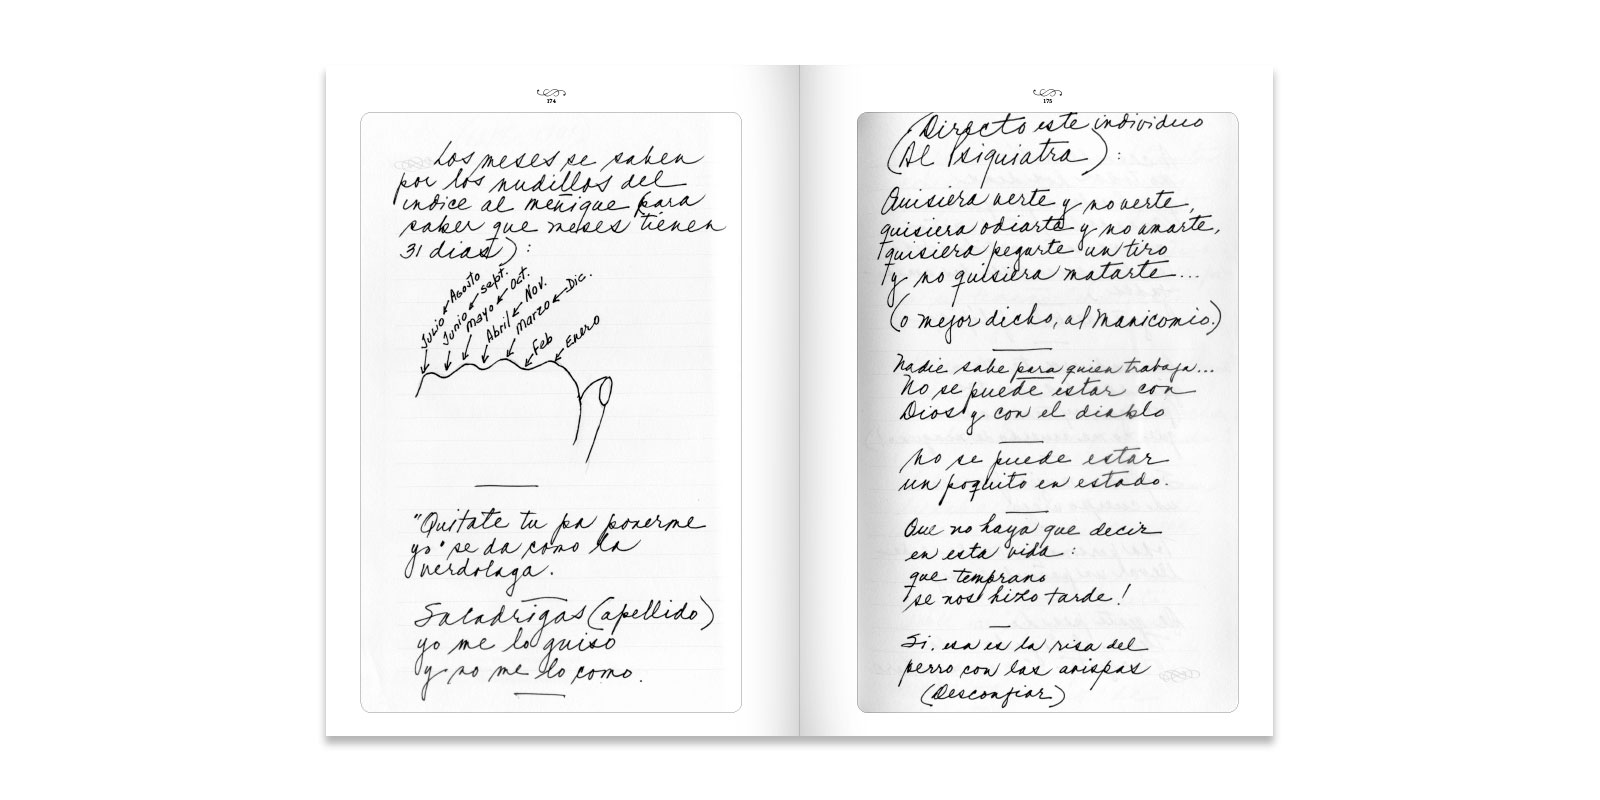 174
Los meses se saben
por los nudillos del
indice al meñique (para
saber que meses tienen
31 dias) :
Agosto
Sept.
Oct.
Nov.
Dic.
Julio
Junio
Mayo
Abril
Marzo
Feb
Enero
"Quitate tu pa ponerme
yo" se da como la
verdolaga.
Saladrigas (apellido)
yo me lo guiso
y no me lo como.
175
(Directo este individuo
(Al Psiquiatra) :
Quisiera verte y no verte,
quisiera odiarte y no amarte,
quisiera pegarte un tiro
y no quisiera matarte...
(o mejor dicho, al manicomio.)
Nadie sabe para quien trabaja...
No se puede estar con
Dios y con el diablo
No se puede estar
un poquito en estado.
Que no haya que decir
en esta vida :
que temprano
se nos hizo tarde!
Si. esa es la risa del
perro con las avispas
(Desconfiar)